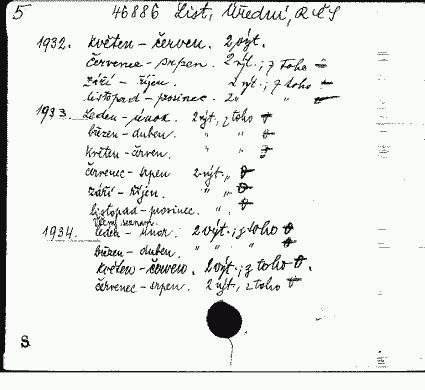 5 46886 List, Úřední, RČS
1932. květen - červen. 2 výt.
červenec - srpen. 2 výt.; z toho
září - říjen. 2 výt.; z toho
listopad - prosinec. 2 " "
1933. Leden - únor. 2 výt., z toho
březen - duben. " "
květen - červen. " "
červenec - srpen 2 výt. "
září - říjen. " "
listopad - prosinec. " "
1934. leden - únor. 2 výt.; z toho
březen - duben. " " "
květen - červen. 2 výt.; z toho
červenec - srpen. 2 výt., z toho
8